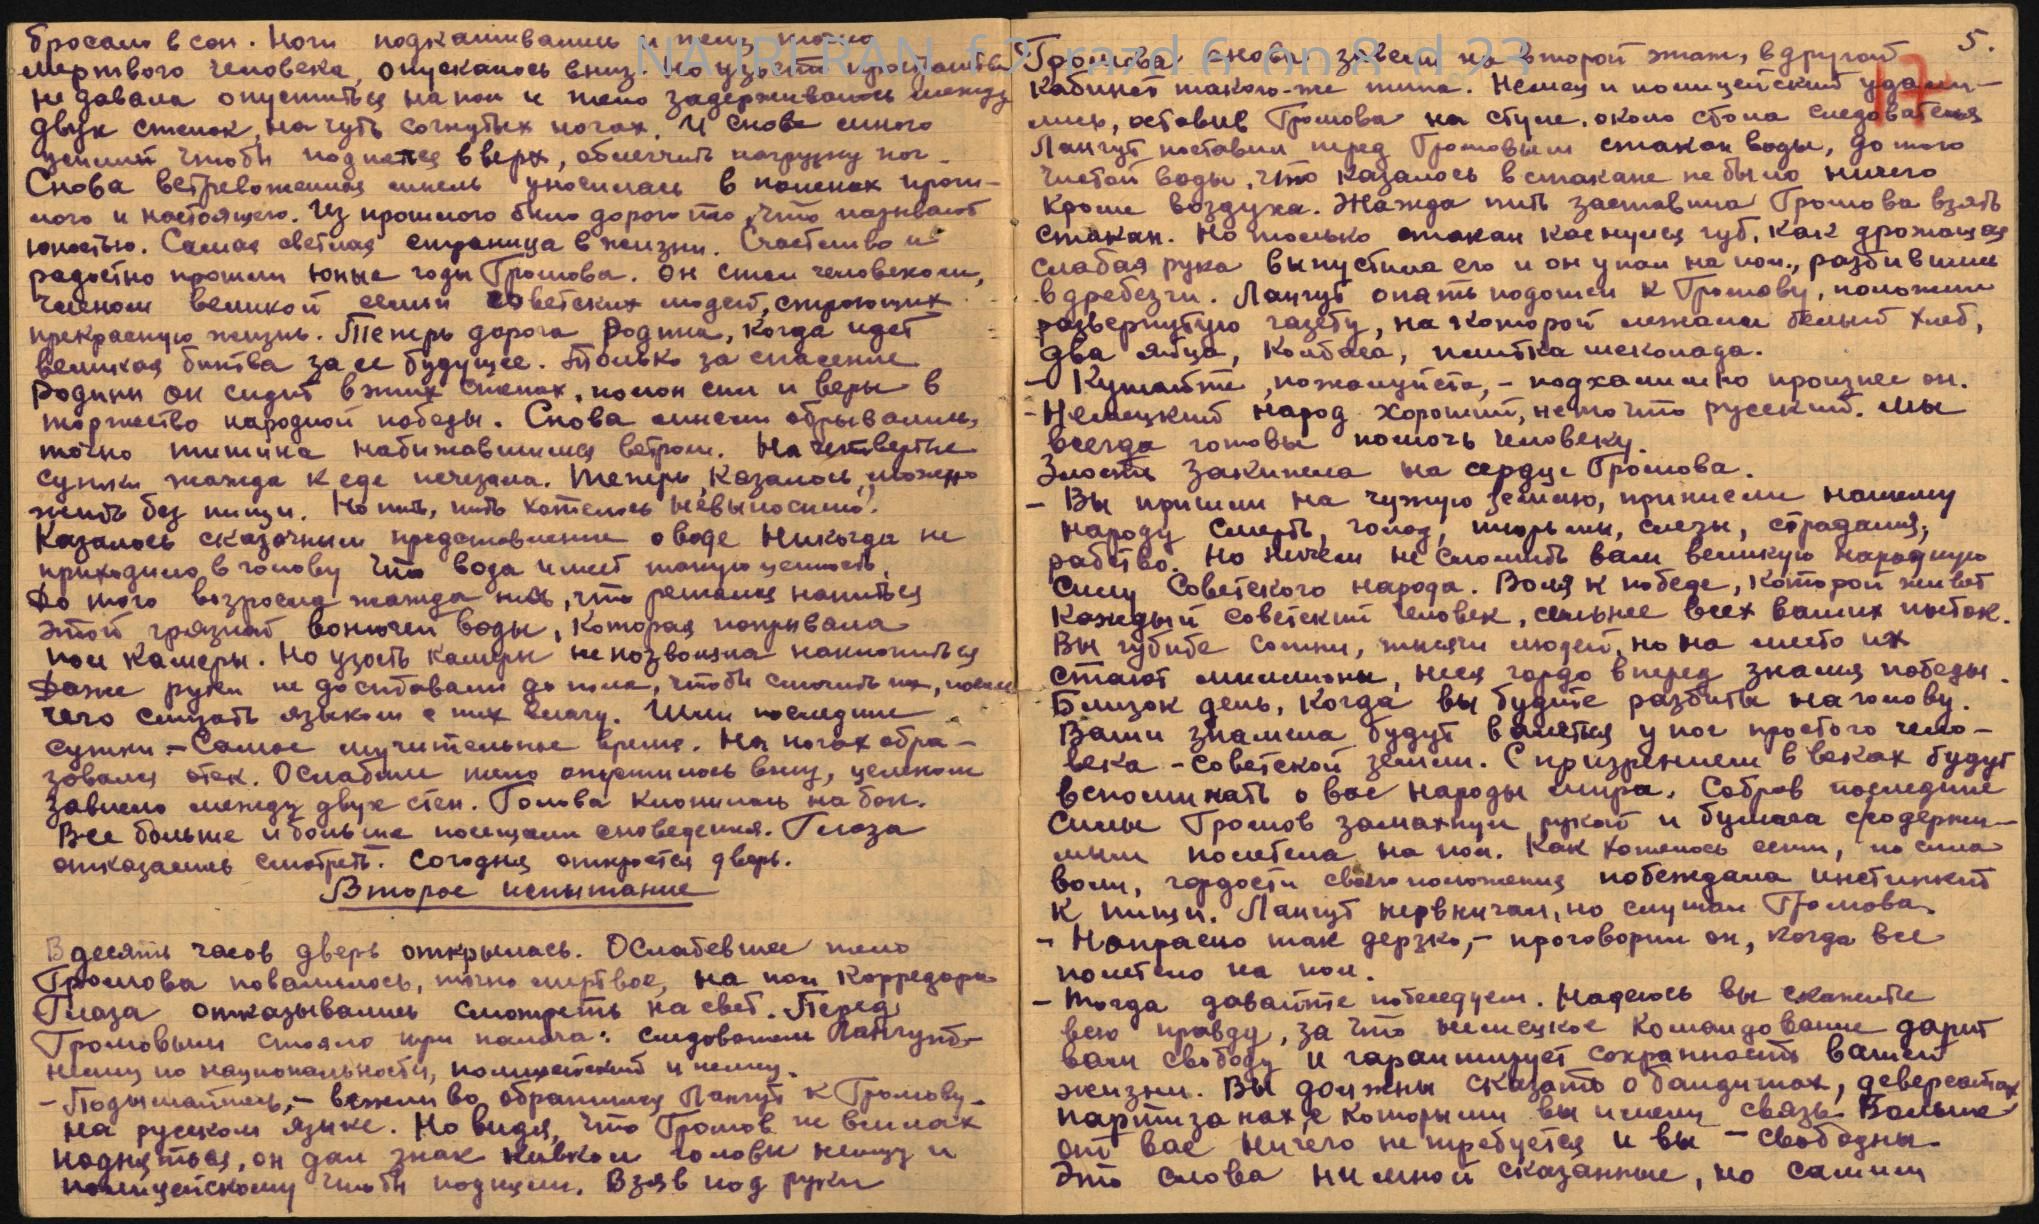 бросало в сон. Ноги подкашивались и тело, точно
мертвого человека, опускалось вниз. Но узость пространства
не давала опуститься на пол и тело задерживалось между
двух стенок, на чуть согнутых ногах. И снова много
усилий, чтобы подняться вверх, облегчить нагрузку ног.
Снова встревоженная мысль уносилась в поисках прош-
лого и настоящего. Из прошлого было дорого то, что называют
юностью. Самая светлая страница в жизни. Счастливо и
радостно прошли юные годы Громова. Он стал человеком,
членом великой семьи советских людей, строющих
прекрасную жизнь. Теперь дорога Родина, когда идет
великая битва за ее будущее. Только за спасение
Родины он сидит в этих стенах, полон сил и веры в
торжество народной победы. Снова мысли обрывались,
точно тишина набижавшимся ветром. На четвертые
сутки жажда к еде исчезала. Теперь, казалось, можно
жить без пищи. Но пить, пить хотелось невыносимо.
Казалось сказочным представление о воде. Никогда не
приходило в голову что вода имеет такую ценность.
До того возросла жажда пить, что решался напиться
этой грязной, вонючей воды, которая покрывала
пол камеры. Но узость камеры не позволяла наклониться
Даже руки не доставали до пола, чтобы смочить их, после
чего слизать языком с них влагу. Шли последние
сутки – самое мучительное время. На ногах обра-
зовался отек. Ослабшее тело опустилось вниз, целиком
зависло между двух стен. Голова клонилась на бок.
Все больше и больше посещали сноведения. Глаза
отказались смотреть. Сегодня откроется дверь.
Второе испытание
В десять часов дверь открылась. Ослабевшее тело
Громова повалилось, точно мертвое, на пол корредора
Глаза отказывались смотреть на свет. Перед
Громовым стояло три палача: следователь Лангут –
немец по национальности, полицейский и немец.
– Подымайтесь, – вежливо обратился Лангут к Громову
на русском языке. Но видя, что Громов не в силах
подняться, он дал знак кивком головы немцу и
полицейскому чтобы подняли. Взяв под руки
5.
17
Громова снова завели на второй этаж, в другой
кабинет такого-же типа. Немец и полицейский удали-
лись, оставив Громова на стуле, около стола следователя
Лангут поставил перед Громовым стакан воды, до того
чистой воды, что казалось в стакане не было ничего
кроме воздуха. Жажда пить заставила Громова взять
стакан. Но только стакан коснулся губ, как дрожащая
слабая рука выпустила его и он упал на пол, разбившись
в дребезги. Лангут опять подошел к Громову, положил
развернутую газету, на которой лежали белый хлеб,
два яйца, колбаса, плитка шеколада.
– Кушайте, пожалуйста, – подхалимно произнес он.
– Немецкий народ хороший, не то что русский. Мы
всегда готовы помочь человеку.
Злость закипела на сердце Громова.
– Вы пришли на чужую землю, принесли нашему
народу смерть, голод, тюрьмы, слезы, страдания,
рабство. Но ничем не сломить вам великую народную
силу Советского народа. Воля к победе, которой живет
каждый советский человек, сильнее всех ваших пыток.
Вы губите сотни, тысячи людей, но на место их
стают миллионы, неся гордо вперед знамя победы.
Близок день, когда вы будите разбиты на голову.
Ваши знамена будут валяться у ног простого чело-
века – советской земли. С призрением в веках будут
вспоминать о вас народы мира. Собрав последние
силы Громов замахнул рукой и бумага с содержи-
мым полетела на пол. Как хотелось есть, но сила
воли, гордости своего положения побеждала инстинкт
к пищи. Лангут нервничал, но слушал Громова.
– Напрасно так дерзко, – проговорил он, когда все
полетело на пол.
– Тогда давайте побеседуем. Надеюсь вы скажете
всю правду, за что немецкое командование дарит
вам свободу и гарантирует сохранность вашей
жизни. Вы должны сказать о бандитах, деверсантах
партизанах, с которыми вы имели связь. Больше
от вас ничего не требуется и вы – свободны.
Это слова ни мной сказанные, но самим
NAIRI RAN f 2 razd 6 op 8 d 23